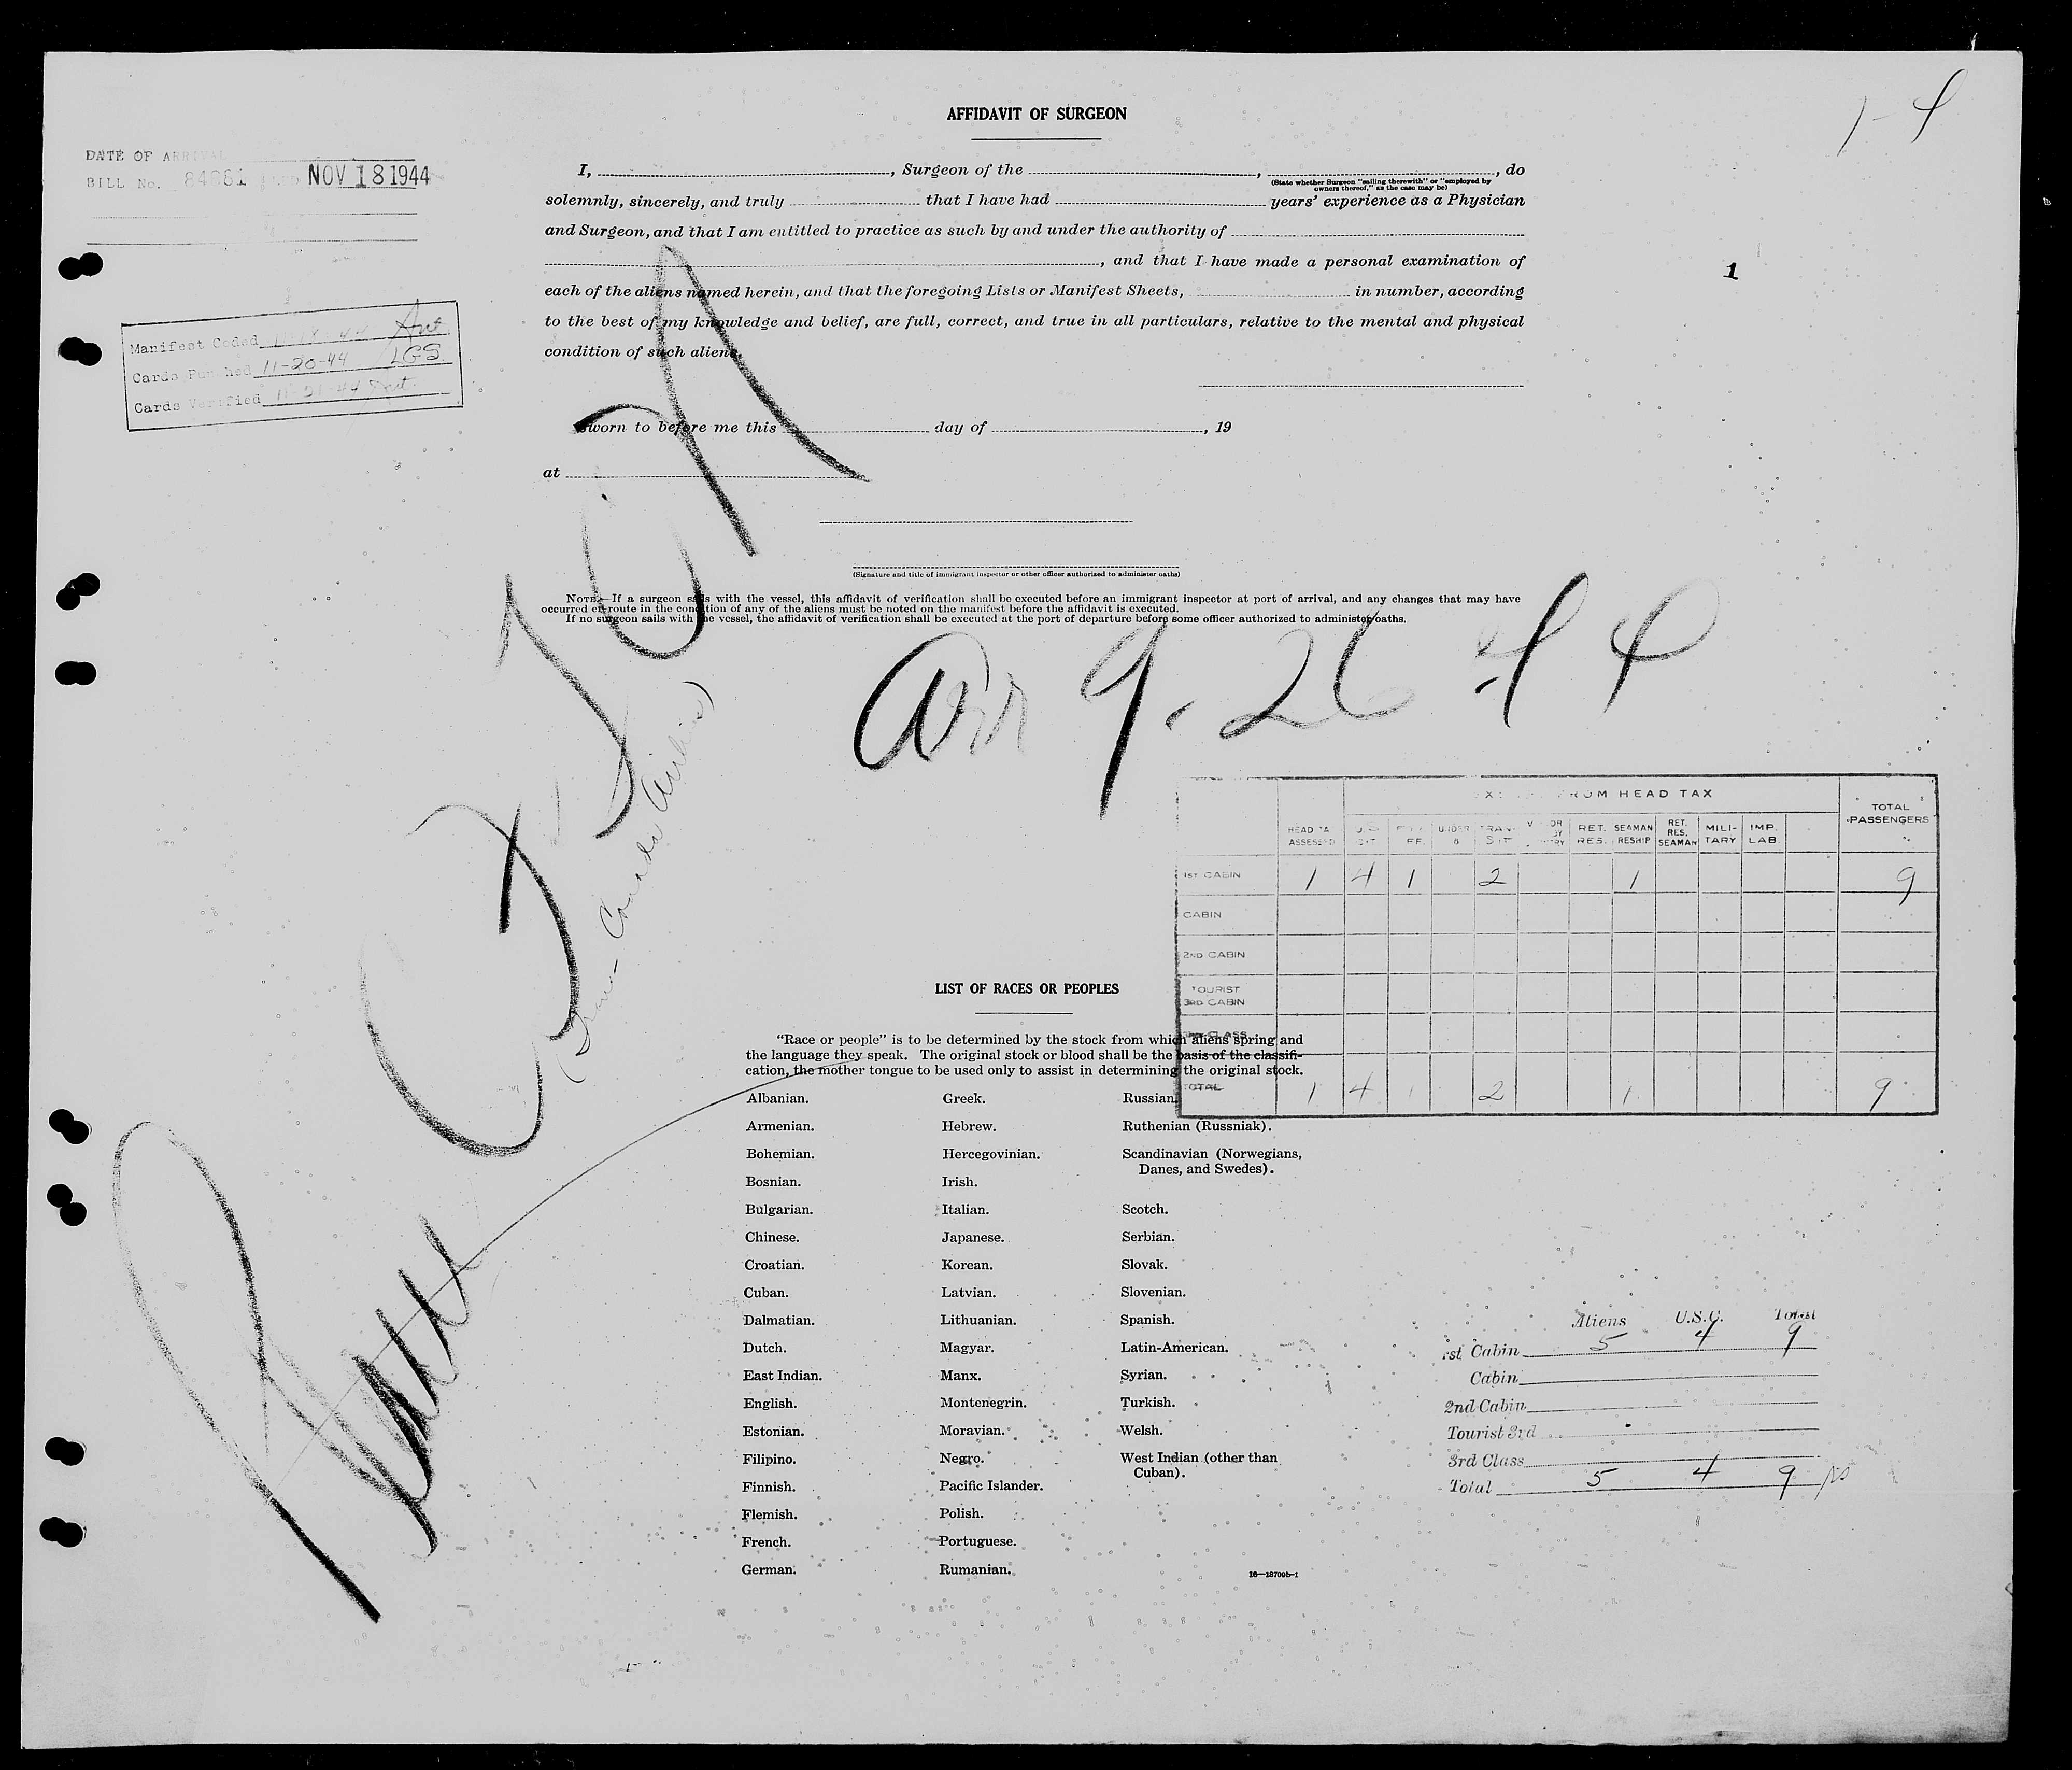 AFFIDAVIT OF SURGEON
1-4
DATE OF ARRIVAL
BILL No. 84681 NOV 18 1944
I, , Surgeon of the , , do
(State whether Surgeon "sailing therewith" or "employed by
owners thereof," as the case may be)
solemnly, sincerely, and truly that I have had years' experience as a Physician
and Surgeon, and that I am entitled to practice as such by and under the authority of
, and that I have made a personal examination of
1
each of the aliens named herein, and that the foregoing Lists or Manifest Sheets, in number, according
to the best of my knowledge and belief, are full, correct, and true in all particulars, relative to the mental and physical
condition of such aliens.
Manifest Coded 11-18-44
Cards Punched 11-20-44 LGS
Cards Verified 11-21-44
Sworn to before me this day of , 19
at
(Signature and title of immigrant inspector or other officer authorized to administer oaths)
NOTE.—If a surgeon sails with the vessel, this affidavit of verification shall be executed before an immigrant inspector at port of arrival, and any changes that may have
occurred en route in the condition of any of the aliens must be noted on the manifest before the affidavit is executed.
If no surgeon sails with the vessel, the affidavit of verification shall be executed at the port of departure before some officer authorized to administer oaths.
Plane CF TCA
(Trans-Canada Airlines)
arr 9-26-44
EXEMPT FROM HEAD TAX
TOTAL PASSENGERS
HEAD TAX ASSESSED
U.S. CIT.
UNDER 6
TRANSIT
RET. RES.
SEAMAN RESHIP
RET. RES. SEAMAN
MILITARY
IMP. LAB.
1ST CABIN 1 4 1 2 1 9
CABIN
2ND CABIN
TOURIST 3RD CABIN
3RD CLASS
TOTAL 1 4 1 2 1 9
LIST OF RACES OR PEOPLES
"Race or people" is to be determined by the stock from which aliens spring and
the language they speak. The original stock or blood shall be the basis of the classifi-
cation, the mother tongue to be used only to assist in determining the original stock.
Albanian.
Armenian.
Bohemian.
Bosnian.
Bulgarian.
Chinese.
Croatian.
Cuban.
Dalmatian.
Dutch.
East Indian.
English.
Estonian.
Filipino.
Finnish.
Flemish.
French.
German.
Greek.
Hebrew.
Hercegovinian.
Irish.
Italian.
Japanese.
Korean.
Latvian.
Lithuanian.
Magyar.
Manx.
Montenegrin.
Moravian.
Negro.
Pacific Islander.
Polish.
Portuguese.
Rumanian.
Russian.
Ruthenian (Russniak).
Scandinavian (Norwegians,
Danes, and Swedes).
Scotch.
Serbian.
Slovak.
Slovenian.
Spanish.
Latin-American.
Syrian.
Turkish.
Welsh.
West Indian (other than
Cuban).
16—18709b-1
Aliens U.S.C. Total
1st Cabin 5 4 9
Cabin
2nd Cabin
Tourist 3rd
3rd Class
Total 5 4 9